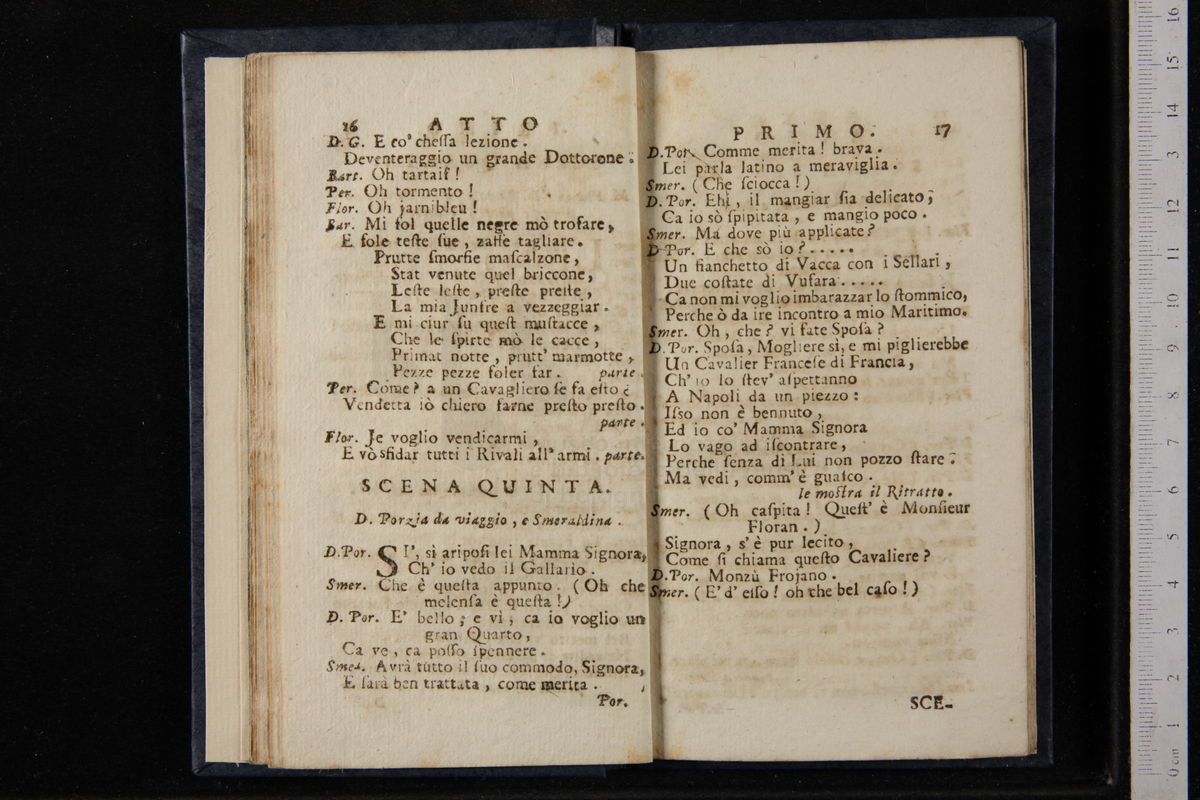 16 ATTO
D. G. E co' chessa lezione.
Deventeraggio un grande Dottorone.
Bart. Oh tartaif!
Per. Oh tormento!
Flor. Oh jarnibleu!
Bar. Mi fol quelle negre mò trofare,
E fole teste sue, zaffe tagliare.
Prutte smorfie mascalzone,
Stat venute quel briccone,
Leste leste, preste preste,
La mia Junfre a vezzeggiar.
E mi ciur su quest mustacce,
Che le spirte mò le cacce,
Primat notte, prutt' marmotte,
Pezze pezze foler far. parte.
Per. Come? a un Cavagliero se fa esto?
Vendetta iò chiero farne presto presto.
parte.
Flor. Je voglio vendicarmi,
E vò sfidar tutti i Rivali all' armi. parte.
SCENA QUINTA.
D. Porzia da viaggio, e Smeraldina.
D. Por. SI', sì ariposi lei Mamma Signora,
Ch' io vedo il Gallario.
Smer. Che è questa appunto. (Oh che
melensa è questa!)
D. Por. E' bello; e vì, ca io voglio un
gran Quarto,
Ca ve, ca posso spennere.
Smer. Avrà tutto il suo commodo, Signora,
E sarà ben trattata, come merita.
Por.
PRIMO. 17
D. Por. Comme merita! brava.
Lei parla latino a meraviglia.
Smer. (Che sciocca!)
D. Por. Ehi, il mangiar sia delicato;
Ca io sò spipitata, e mangio poco.
Smer. Ma dove più applicate?
D Por. E che sò io?.....
Un fianchetto di Vacca con i Sellari,
Due costate di Vufara.....
Ca non mi voglio imbarazzar lo stommico,
Perche ò da ire incontro a mio Maritimo.
Smer. Oh, che? vi fate Sposa?
D. Por. Sposa, Mogliere sì, e mi piglierebbe
Un Cavalier Francese di Francia,
Ch' io lo stev' aspettanno
A Napoli da un piezzo:
Isso non è bennuto,
Ed io co' Mamma Signora
Lo vago ad iscontrare,
Perche senza di Lui non pozzo stare.
Ma vedi, comm' è guasco.
le mostra il Ritratto.
Smer. (Oh caspita! Quest' è Monsieur
Floran.)
Signora, s' è pur lecito,
Come si chiama questo Cavaliere?
D. Por. Monzù Frojano.
Smer. (E' d' esso! oh che bel caso!)
SCE-